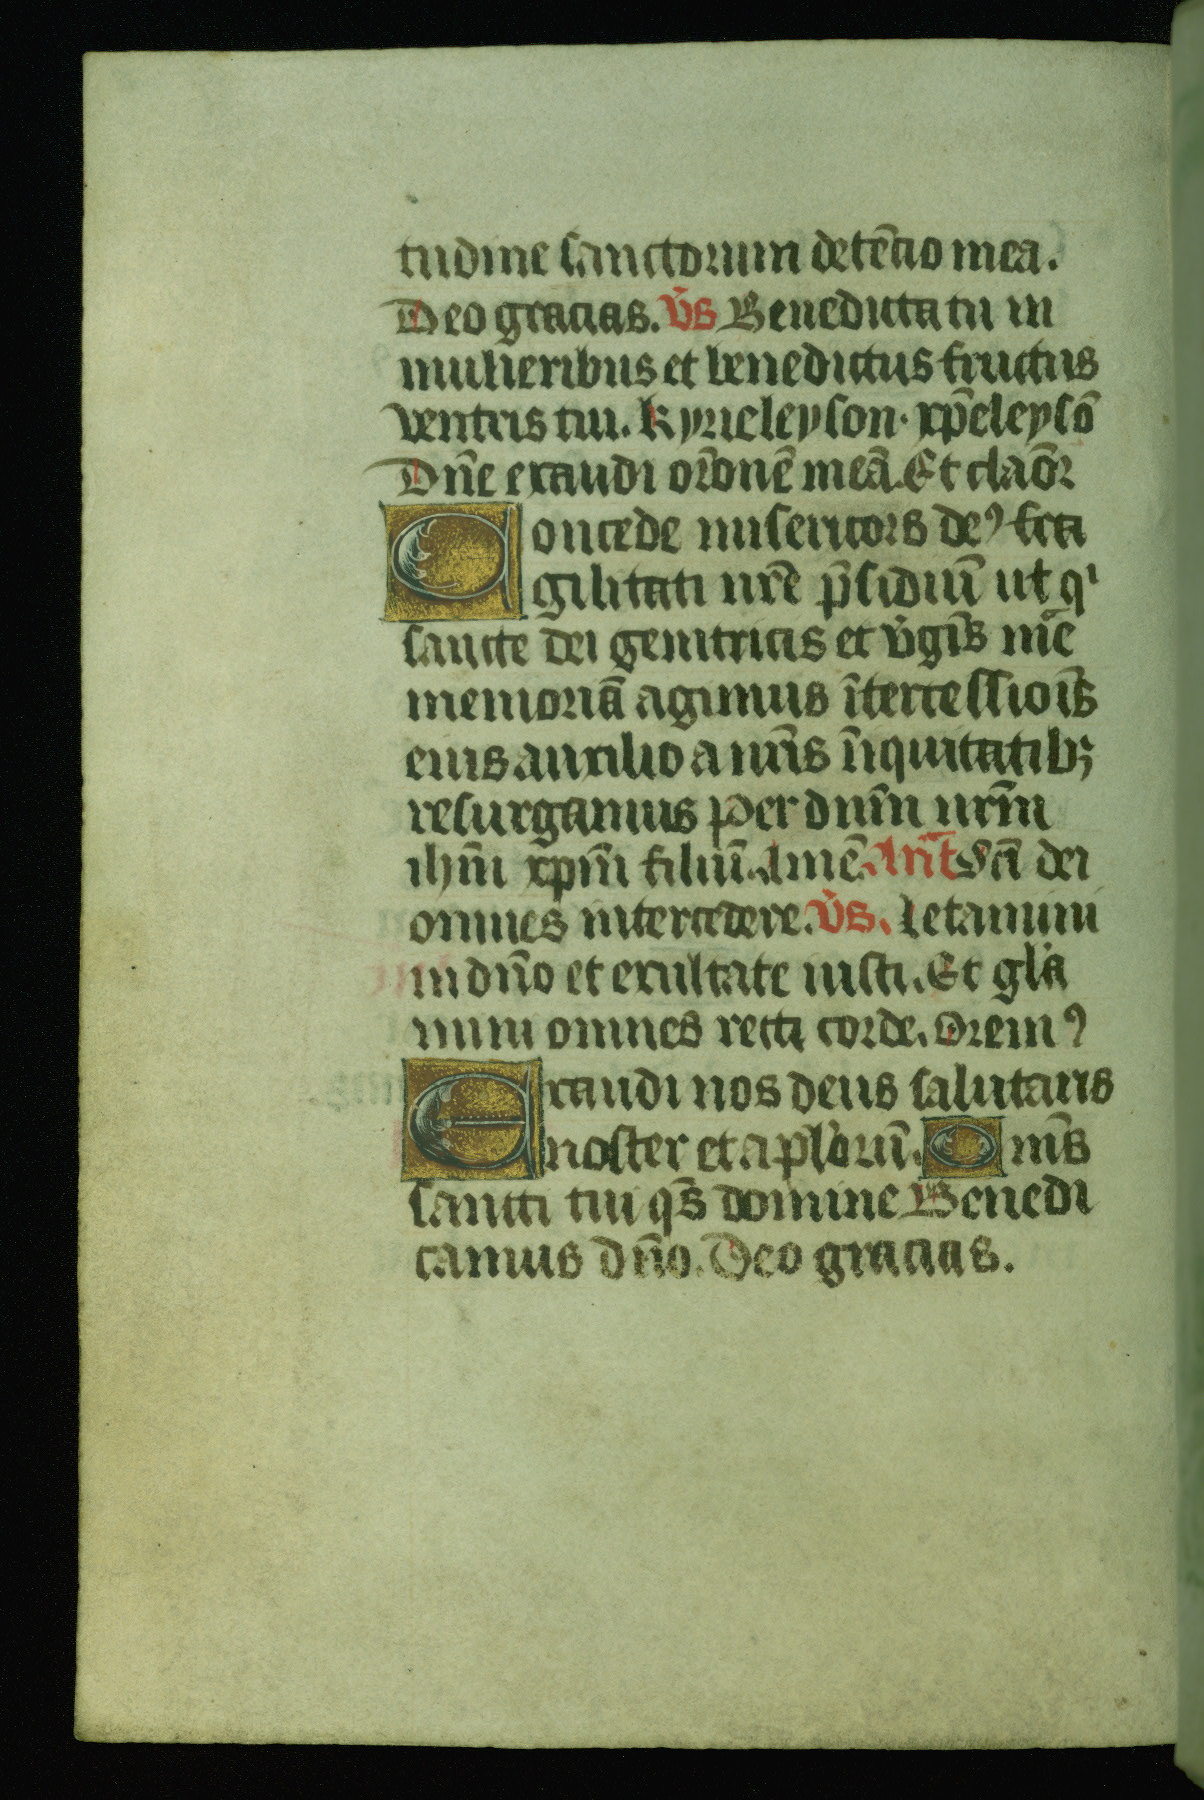 tudine sanctorum detēcio mea.
Deo gracias. v̄s Benedicta tu in
mulieribus et benedictus fructus
ventris tui. kyrieleyson. xp̄eleysō
Dn̄e exaudi or̄onē meā. Et clāor
Concede misericors deꝰ fra
gilitati nr̄e p̄sidiū ut qⁱ
sancte dei genitricis et v̄gīs mīe
memoriā agimus ītercessiōis
eius auxilio a nr̄is īiquitatibꝫ
resurgamus Per dnm̄ nrm̄
ihm̄ xpm̄ filiū. Amē. An̄t Sc̄i dei
omnes intercedere. v̄s. Letamini
in dn̄o et exultate iusti. Et gl̄a
mini omnes recti corde. Oremꝰ
Exaudi nos deus salutaris
noster et apl̄orū. Om̄s
sancti tui qs̄ domine Benedi
camus dn̄o. Deo gracias.